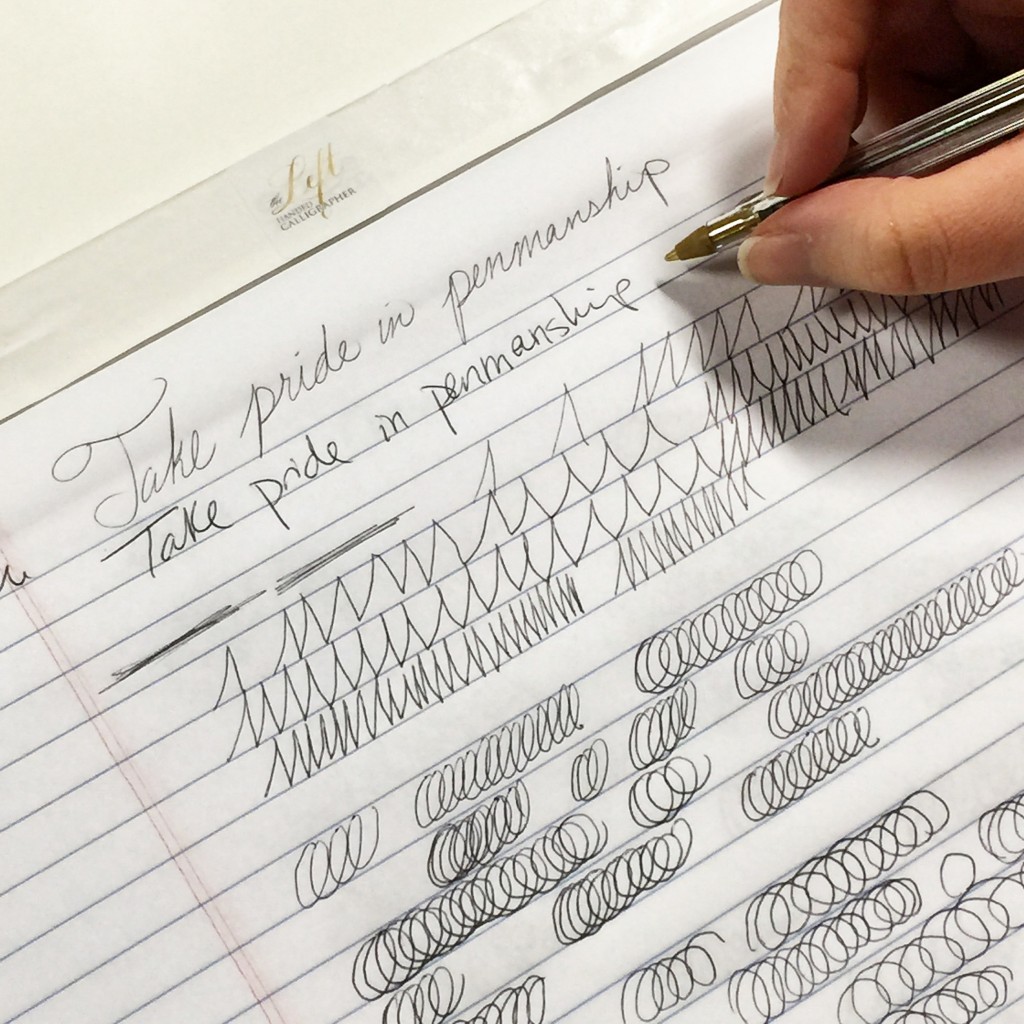 the Left
HANDED
CALLIGRAPHER
Take pride in penmanship
Take pride in penmanship